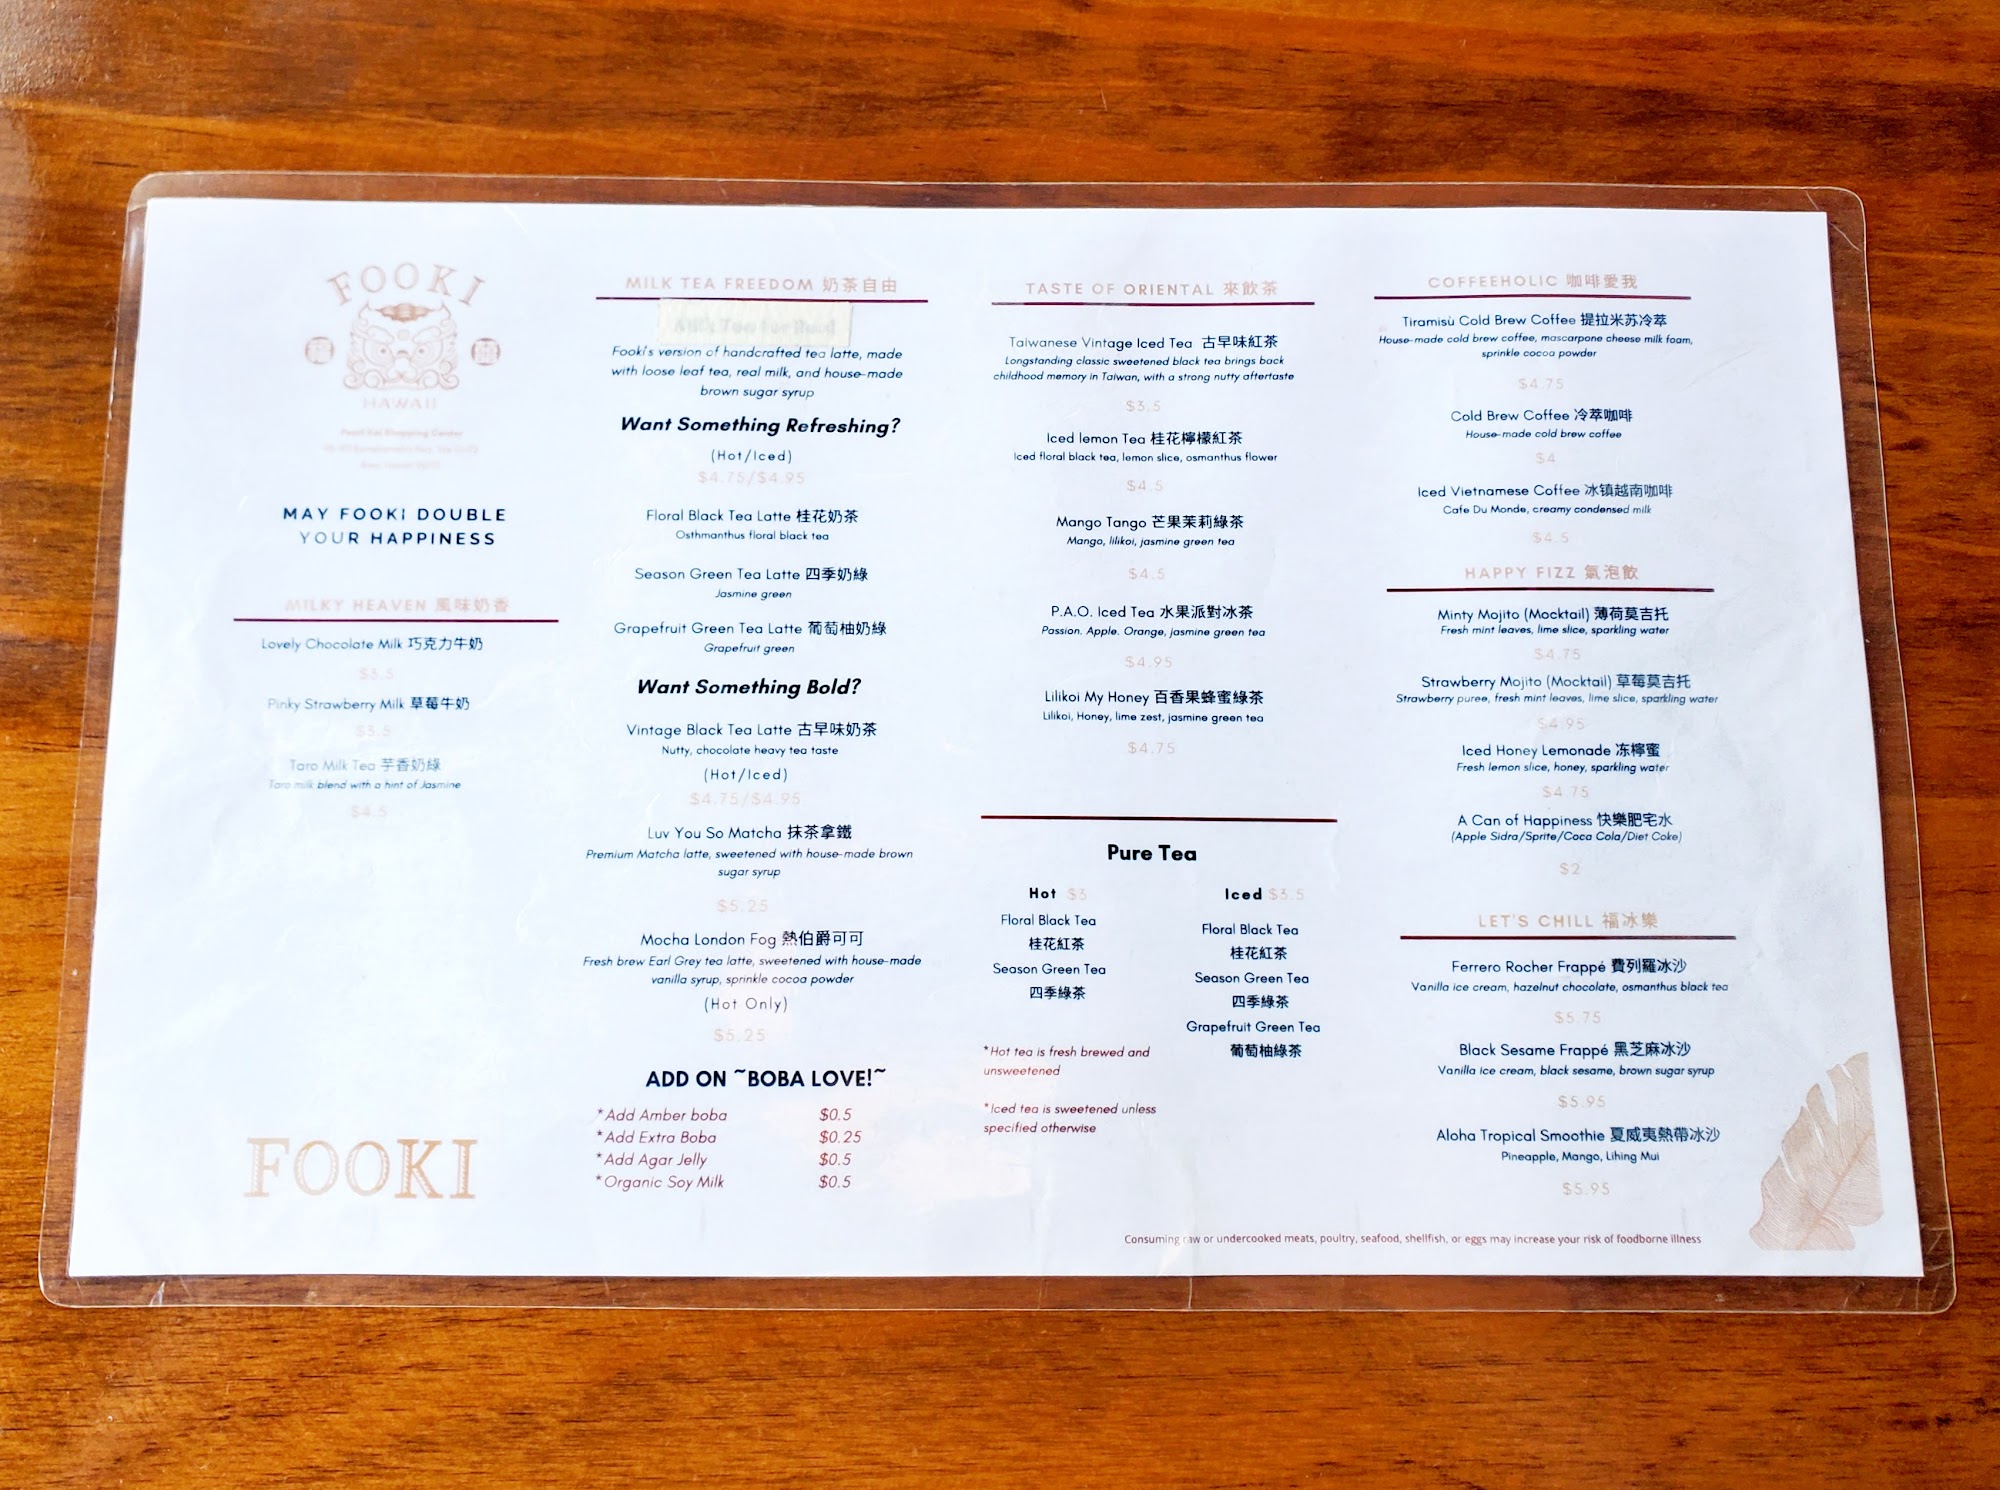 FOOKI
HAWAII
Pearl Kai Shopping Center
MAY FOOKI DOUBLE
YOUR HAPPINESS
MILKY HEAVEN 風味奶香
Lovely Chocolate Milk 巧克力牛奶
$3.5
Pinky Strawberry Milk 草莓牛奶
$3.5
Taro Milk Tea 芋香奶綠
Taro milk blend with a hint of Jasmine
$4.5
FOOKI
MILK TEA FREEDOM 奶茶自由
Fooki's version of handcrafted tea latte, made
with loose leaf tea, real milk, and house-made
brown sugar syrup
Want Something Refreshing?
(Hot/Iced)
$4.75/$4.95
Floral Black Tea Latte 桂花奶茶
Osthmanthus floral black tea
Season Green Tea Latte 四季奶綠
Jasmine green
Grapefruit Green Tea Latte 葡萄柚奶綠
Grapefruit green
Want Something Bold?
Vintage Black Tea Latte 古早味奶茶
Nutty, chocolate heavy tea taste
(Hot/Iced)
$4.75/$4.95
Luv You So Matcha 抹茶拿鐵
Premium Matcha latte, sweetened with house-made brown
sugar syrup
$5.25
Mocha London Fog 熱伯爵可可
Fresh brew Earl Grey tea latte, sweetened with house-made
vanilla syrup, sprinkle cocoa powder
(Hot Only)
$5.25
ADD ON ~BOBA LOVE!~
*Add Amber boba $0.5
*Add Extra Boba $0.25
*Add Agar Jelly $0.5
*Organic Soy Milk $0.5
TASTE OF ORIENTAL 來飲茶
Taiwanese Vintage Iced Tea 古早味紅茶
Longstanding classic sweetened black tea brings back
childhood memory in Taiwan, with a strong nutty aftertaste
$3.5
Iced lemon Tea 桂花檸檬紅茶
Iced floral black tea, lemon slice, osmanthus flower
$4.5
Mango Tango 芒果茉莉綠茶
Mango, lilikoi, jasmine green tea
$4.5
P.A.O. Iced Tea 水果派對冰茶
Passion. Apple. Orange, jasmine green tea
$4.95
Lilikoi My Honey 百香果蜂蜜綠茶
Lilikoi, Honey, lime zest, jasmine green tea
$4.75
Pure Tea
Hot $3
Floral Black Tea
桂花紅茶
Season Green Tea
四季綠茶
Iced $3.5
Floral Black Tea
桂花紅茶
Season Green Tea
四季綠茶
Grapefruit Green Tea
葡萄柚綠茶
*Hot tea is fresh brewed and
unsweetened
*Iced tea is sweetened unless
specified otherwise
COFFEEHOLIC 咖啡愛我
Tiramisù Cold Brew Coffee 提拉米苏冷萃
House-made cold brew coffee, mascarpone cheese milk foam,
sprinkle cocoa powder
$4.75
Cold Brew Coffee 冷萃咖啡
House-made cold brew coffee
$4
Iced Vietnamese Coffee 冰镇越南咖啡
Cafe Du Monde, creamy condensed milk
$4.5
HAPPY FIZZ 氣泡飲
Minty Mojito (Mocktail) 薄荷莫吉托
Fresh mint leaves, lime slice, sparkling water
$4.75
Strawberry Mojito (Mocktail) 草莓莫吉托
Strawberry puree, fresh mint leaves, lime slice, sparkling water
$4.95
Iced Honey Lemonade 冻檸蜜
Fresh lemon slice, honey, sparkling water
$4.75
A Can of Happiness 快樂肥宅水
(Apple Sidra/Sprite/Coca Cola/Diet Coke)
$2
LET'S CHILL 福冰樂
Ferrero Rocher Frappé 費列羅冰沙
Vanilla ice cream, hazelnut chocolate, osmanthus black tea
$5.75
Black Sesame Frappé 黑芝麻冰沙
Vanilla ice cream, black sesame, brown sugar syrup
$5.95
Aloha Tropical Smoothie 夏威夷熱帶冰沙
Pineapple, Mango, Lihing Mui
$5.95
Consuming raw or undercooked meats, poultry, seafood, shellfish, or eggs may increase your risk of foodborne illness